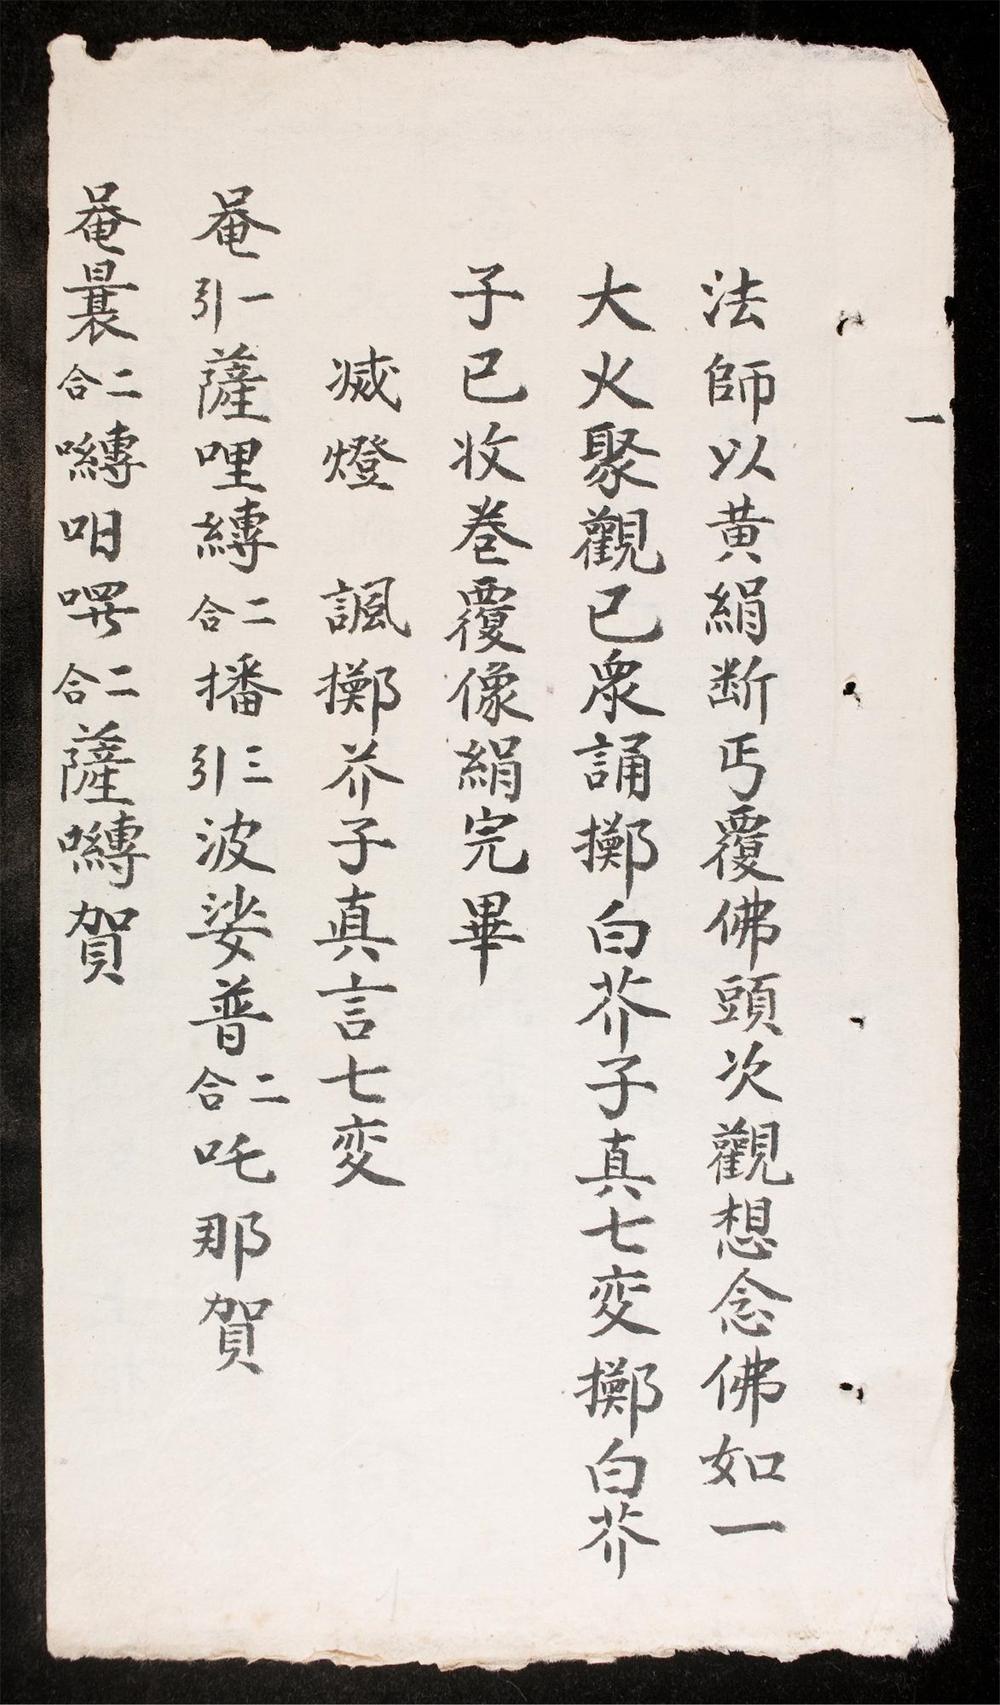 一
法師以黄絹断丐覆佛頭次觀想念佛如一
大火聚觀已衆誦擲白芥子真七変擲白芥
子已收巻覆像絹完畢
滅燈　諷擲芥子真言七変
唵引一薩哩嚩合二播引三波娑普合二吒那賀
唵曩合二嚩呬㗚合二薩嚩賀